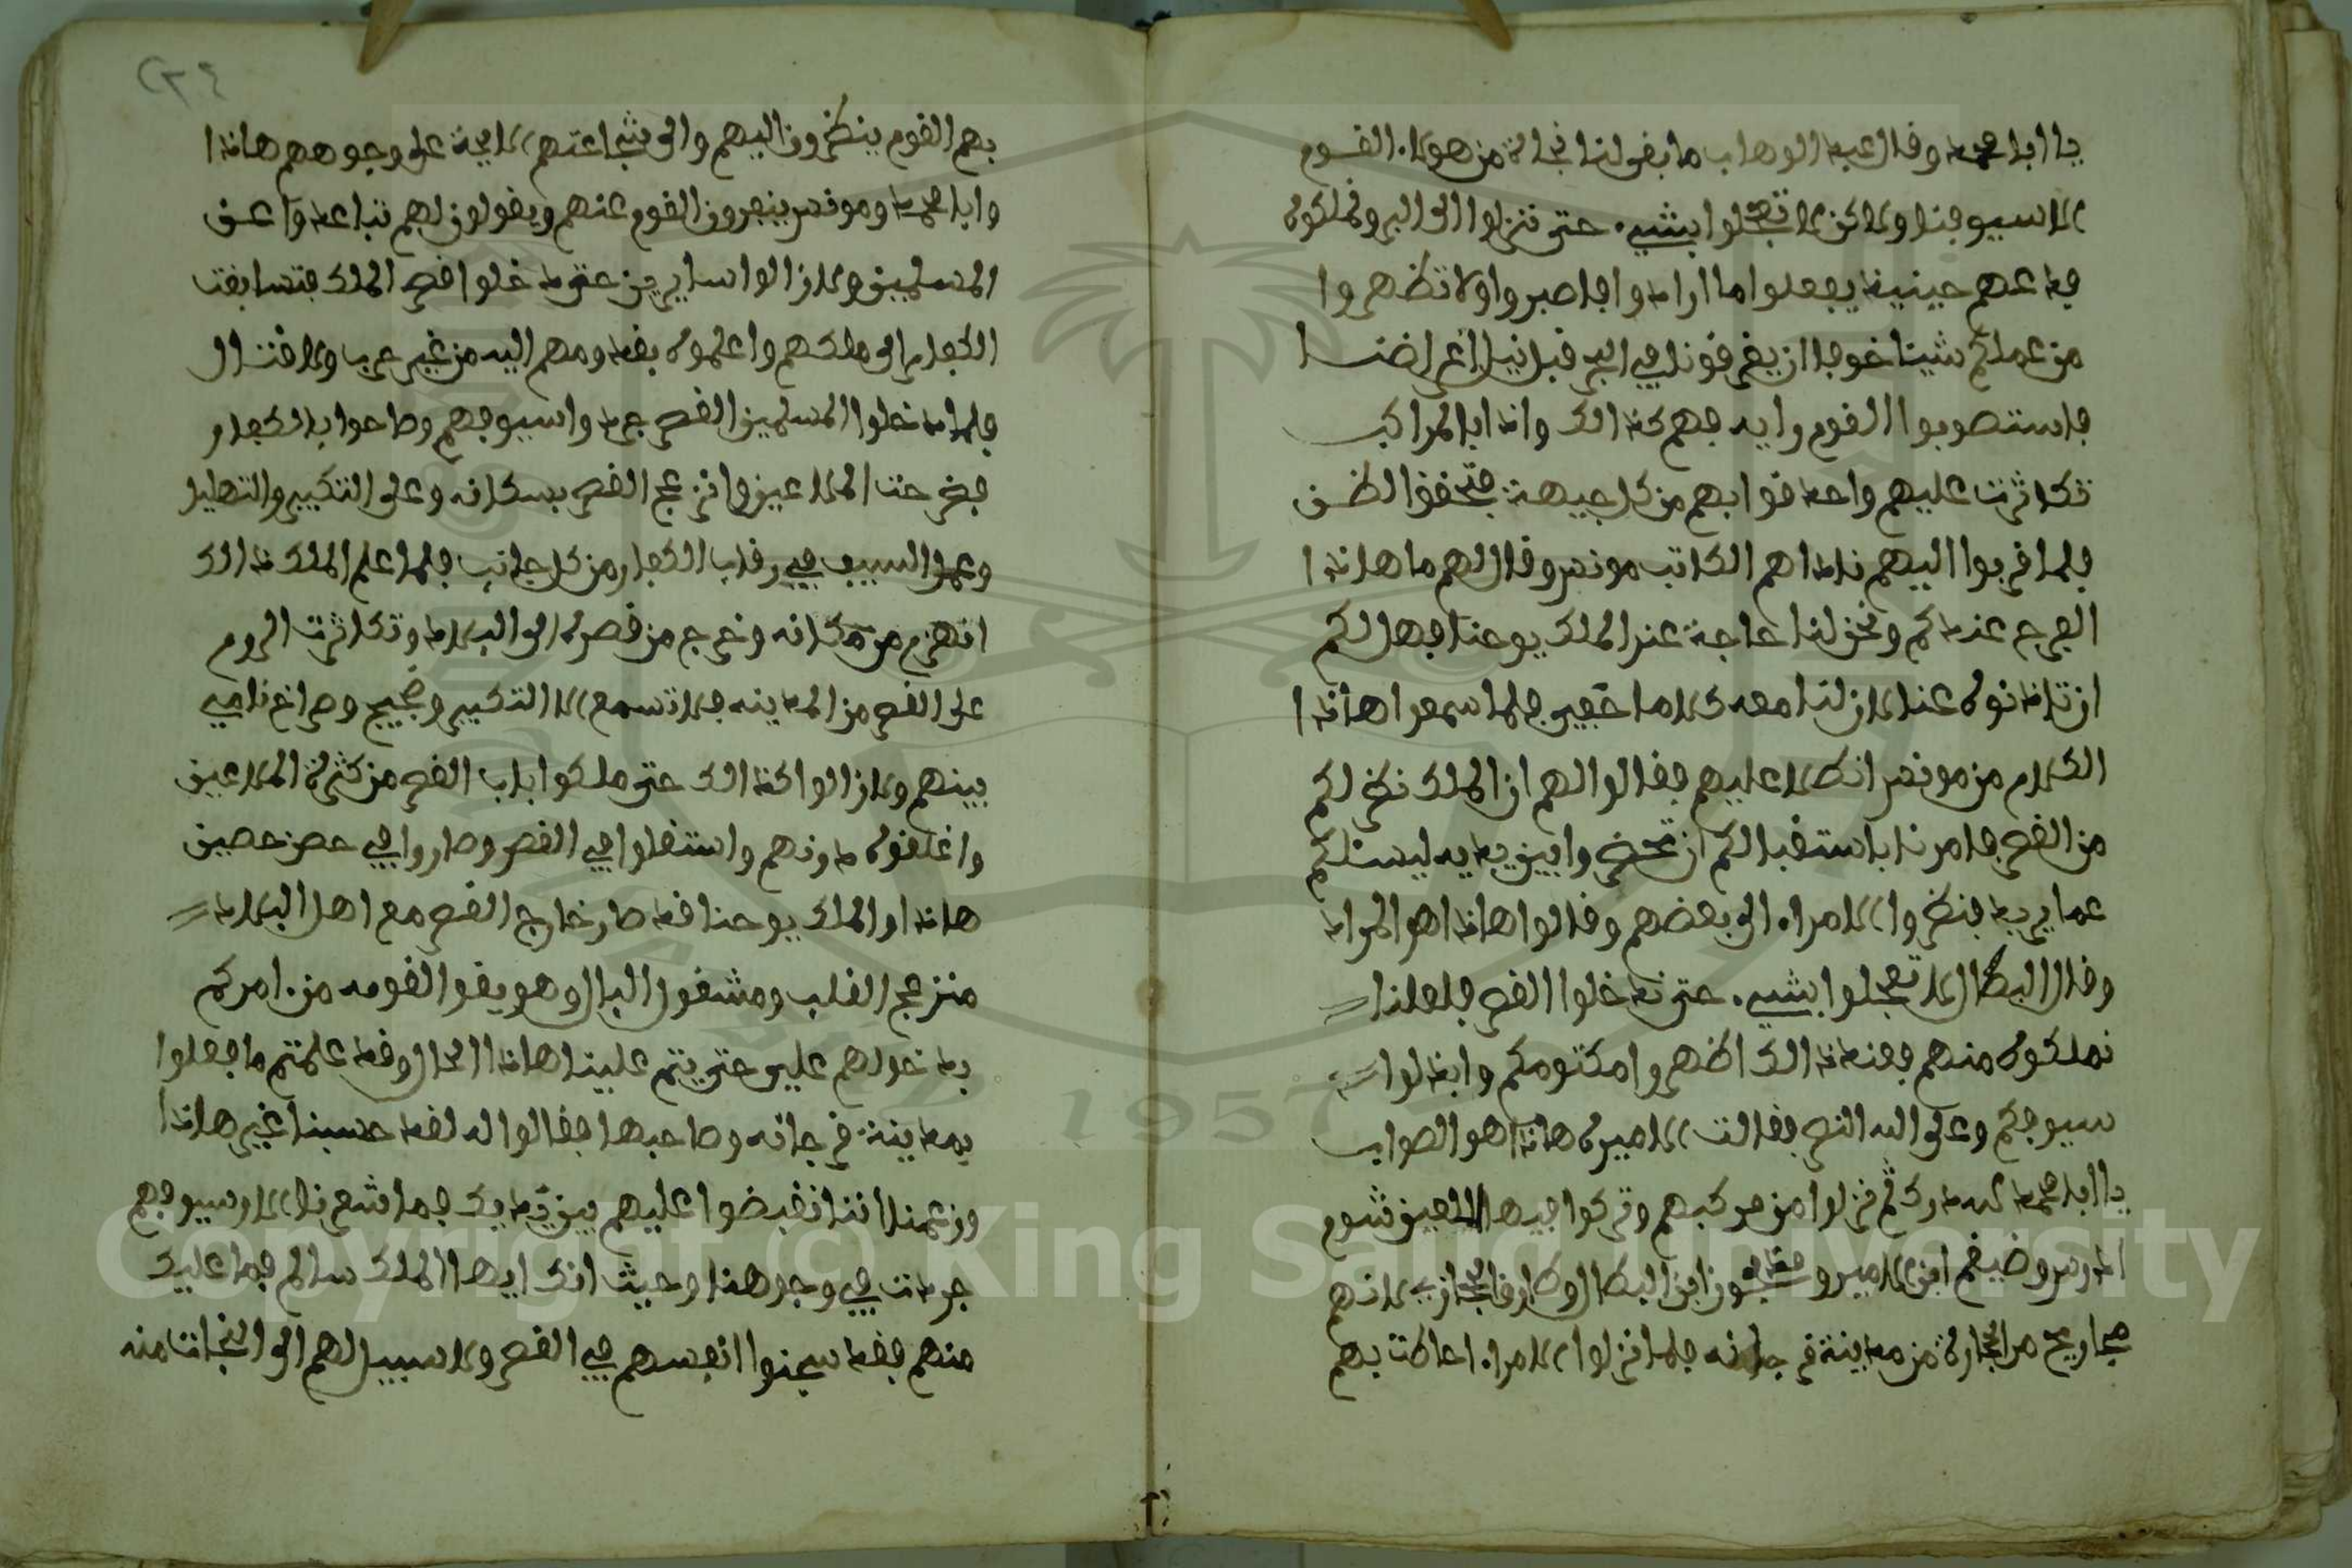 يا ابا محمد وقال عبد الوهاب ما بقى لنا نجاة من هولاء القوم
الا سيوفنا ولاكن لا تعجلوا بشيء حتى تنزلوا الى البر وتملكوه
فدعهم حينيذ يفعلوا ما ارادوا فاصبروا ولا تظهروا
من عملكم شيئا خوفا ان يغرقونا في البحر قبل نيل اغراضنا
فاستصوبوا القوم رايه فهم كذالك واذا بالمراكب
تكاثرت عليهم واحدقوا بهم من كل جيهة فتحققوا الظن
فلما قربوا اليهم ناداهم الكاتب مونس وقال لهم ما هاذا
الفرج عندكم ونحن لنا حاجة عند الملك يوحنا فهل لكم
ان تاذنوه عنا لان لنا معه كلاما خفي فلما سمعوا هاذا
الكلام من مونس انطلا عليهم فقالوا لهم ان الملك نظر لكم
من القصر فامرنا باستقبالكم ان تحضروا بين يديه ليسئلكم
عما يريد فنظروا الامراء الى بعضهم وقالوا هاذا هو المراد
وقال البطال لا تعجلوا بشيء حتى ندخلوا القصر فلعلنا
نملكوه منهم فعند ذالك اظهروا مكتومكم وابذلوا
سيوفكم وعلى الله النصر فقالت الاميرة هاذا هو الصواب
يا ابا محمد لله درك ثم نزلوا من مركبهم وتركوا فيها اللعين شوم
المدرس وضيغم ابن الامير و ابن البطال وطارق الحجازي لانهم
مجاريح من الجارة من مدينة فرجانه فلما نزلوا الامراء احاطت بهم
بهم القوم ينظرون اليهم والى شجاعتهم لايحة على وجوههم هاذا
وابا محمد ومونس ينهرون القوم عنهم ويقولون لهم تباعدوا عن
المسلمين ولا زالوا سايرين حتى دخلوا قصر الملك فتسابقت
الكفار الى ملكهم واعلموه بقدومهم اليه من غير حرب ولا قتال
فلما دخلوا المسلمين القصر جردوا سيوفهم وصاحوا بالكفار
فخرجت الملاعين وانزعج القصر بسكانه وعلى التكبير والتهليل
وعمل السيف في رقاب الكفار من كل جانب فلما علم الملك ذالك
انهزم من مكانه وخرج من قصره الى البلاد وتكاثرت الروم
على القصر من المدينه فلا تسمع الا التكبير وضجيج وصراخ نامي
بينهم ولا زالوا كذالك حتى ملكوا باب القصر من كثرة الملاعين
واغلقوه دونهم واستقلوا في القصر وصاروا في حصن حصين
هاذا والملك يوحنا قد صار خارج القصر مع اهل البلاد
منزعج القلب ومشغول البال وهو يقول لقومه من امركم
بدخولهم علي حتى يتم علينا هاذا الحال وقد علمتم ما فعلوا
بمدينة فرجانه وصاحبها فقالوا له لقد حسبنا غير هاذا
وزعمنا اننا نقبضوا عليهم بين يديك فما شعرنا الا وسيوفهم
جردت في وجوهنا وحيث انك ايها الملك سالم فما عليك
منهم فقد سجنوا انفسهم في القصر ولا سبيل لهم الى النجات منه